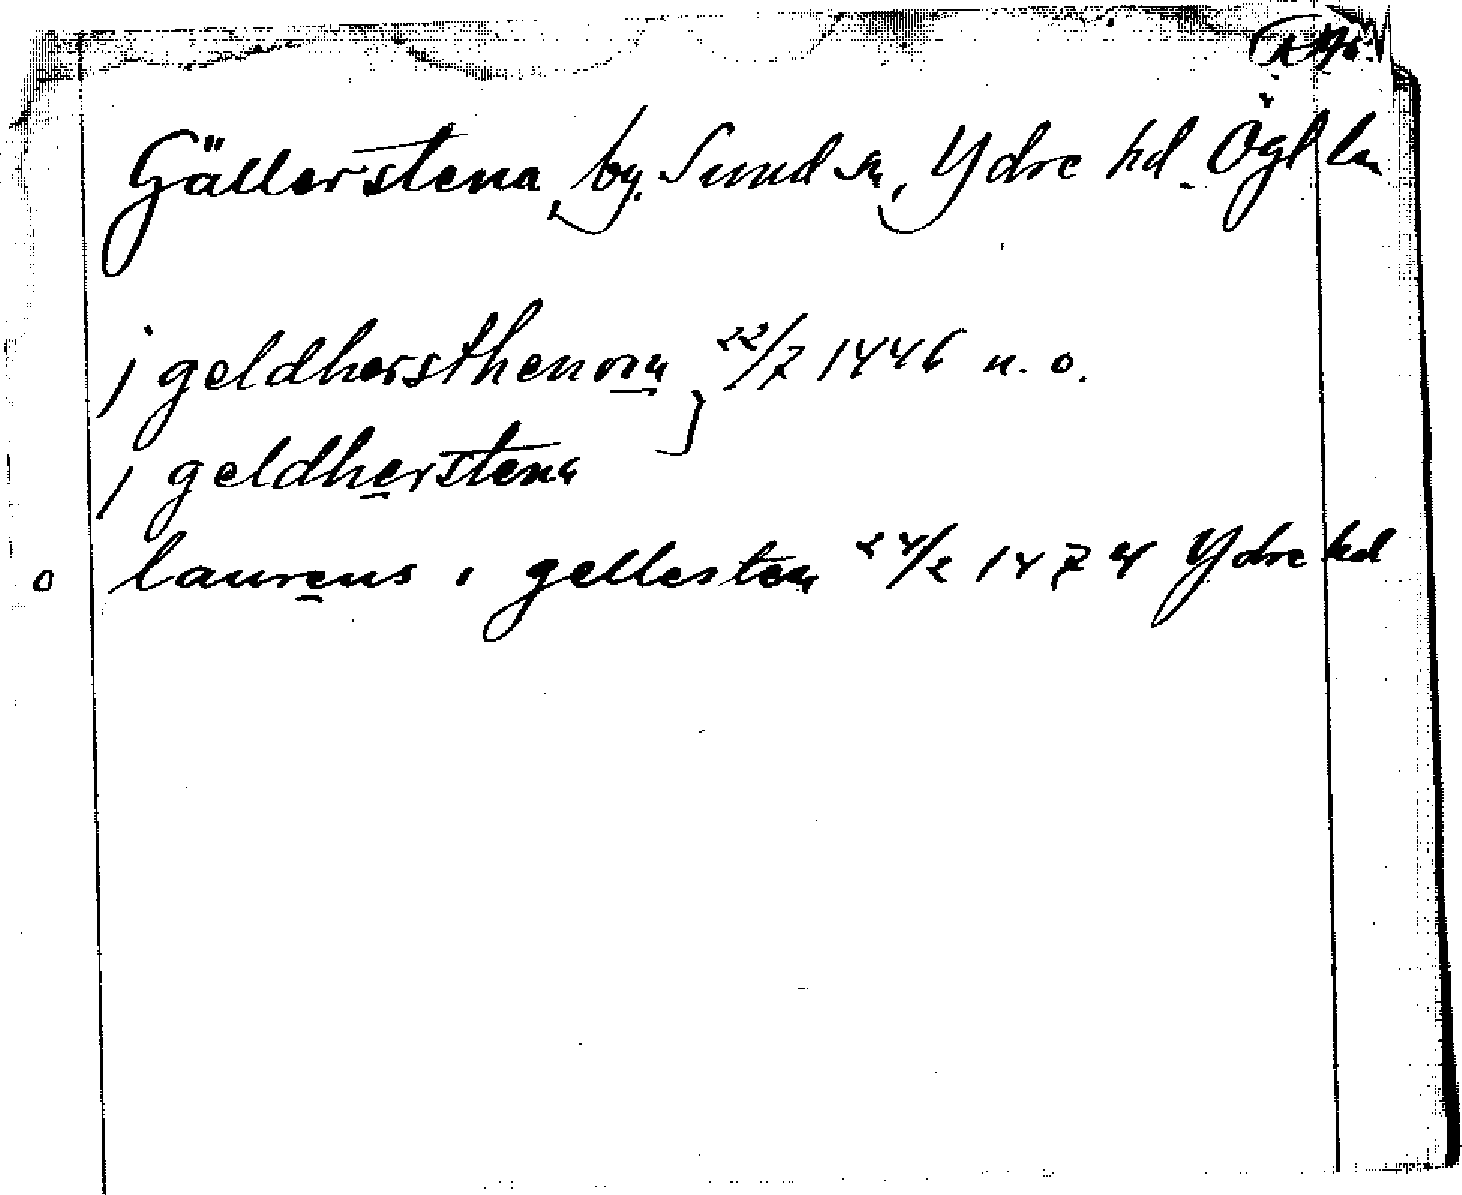 Gällerstena, by. Sund sn, Ydre hd. Ögl ln
j geldhersthenom 22/7 1446 n. o.
j geldherstena
o laurens i gellesten 24/2 1474 Ydre hd